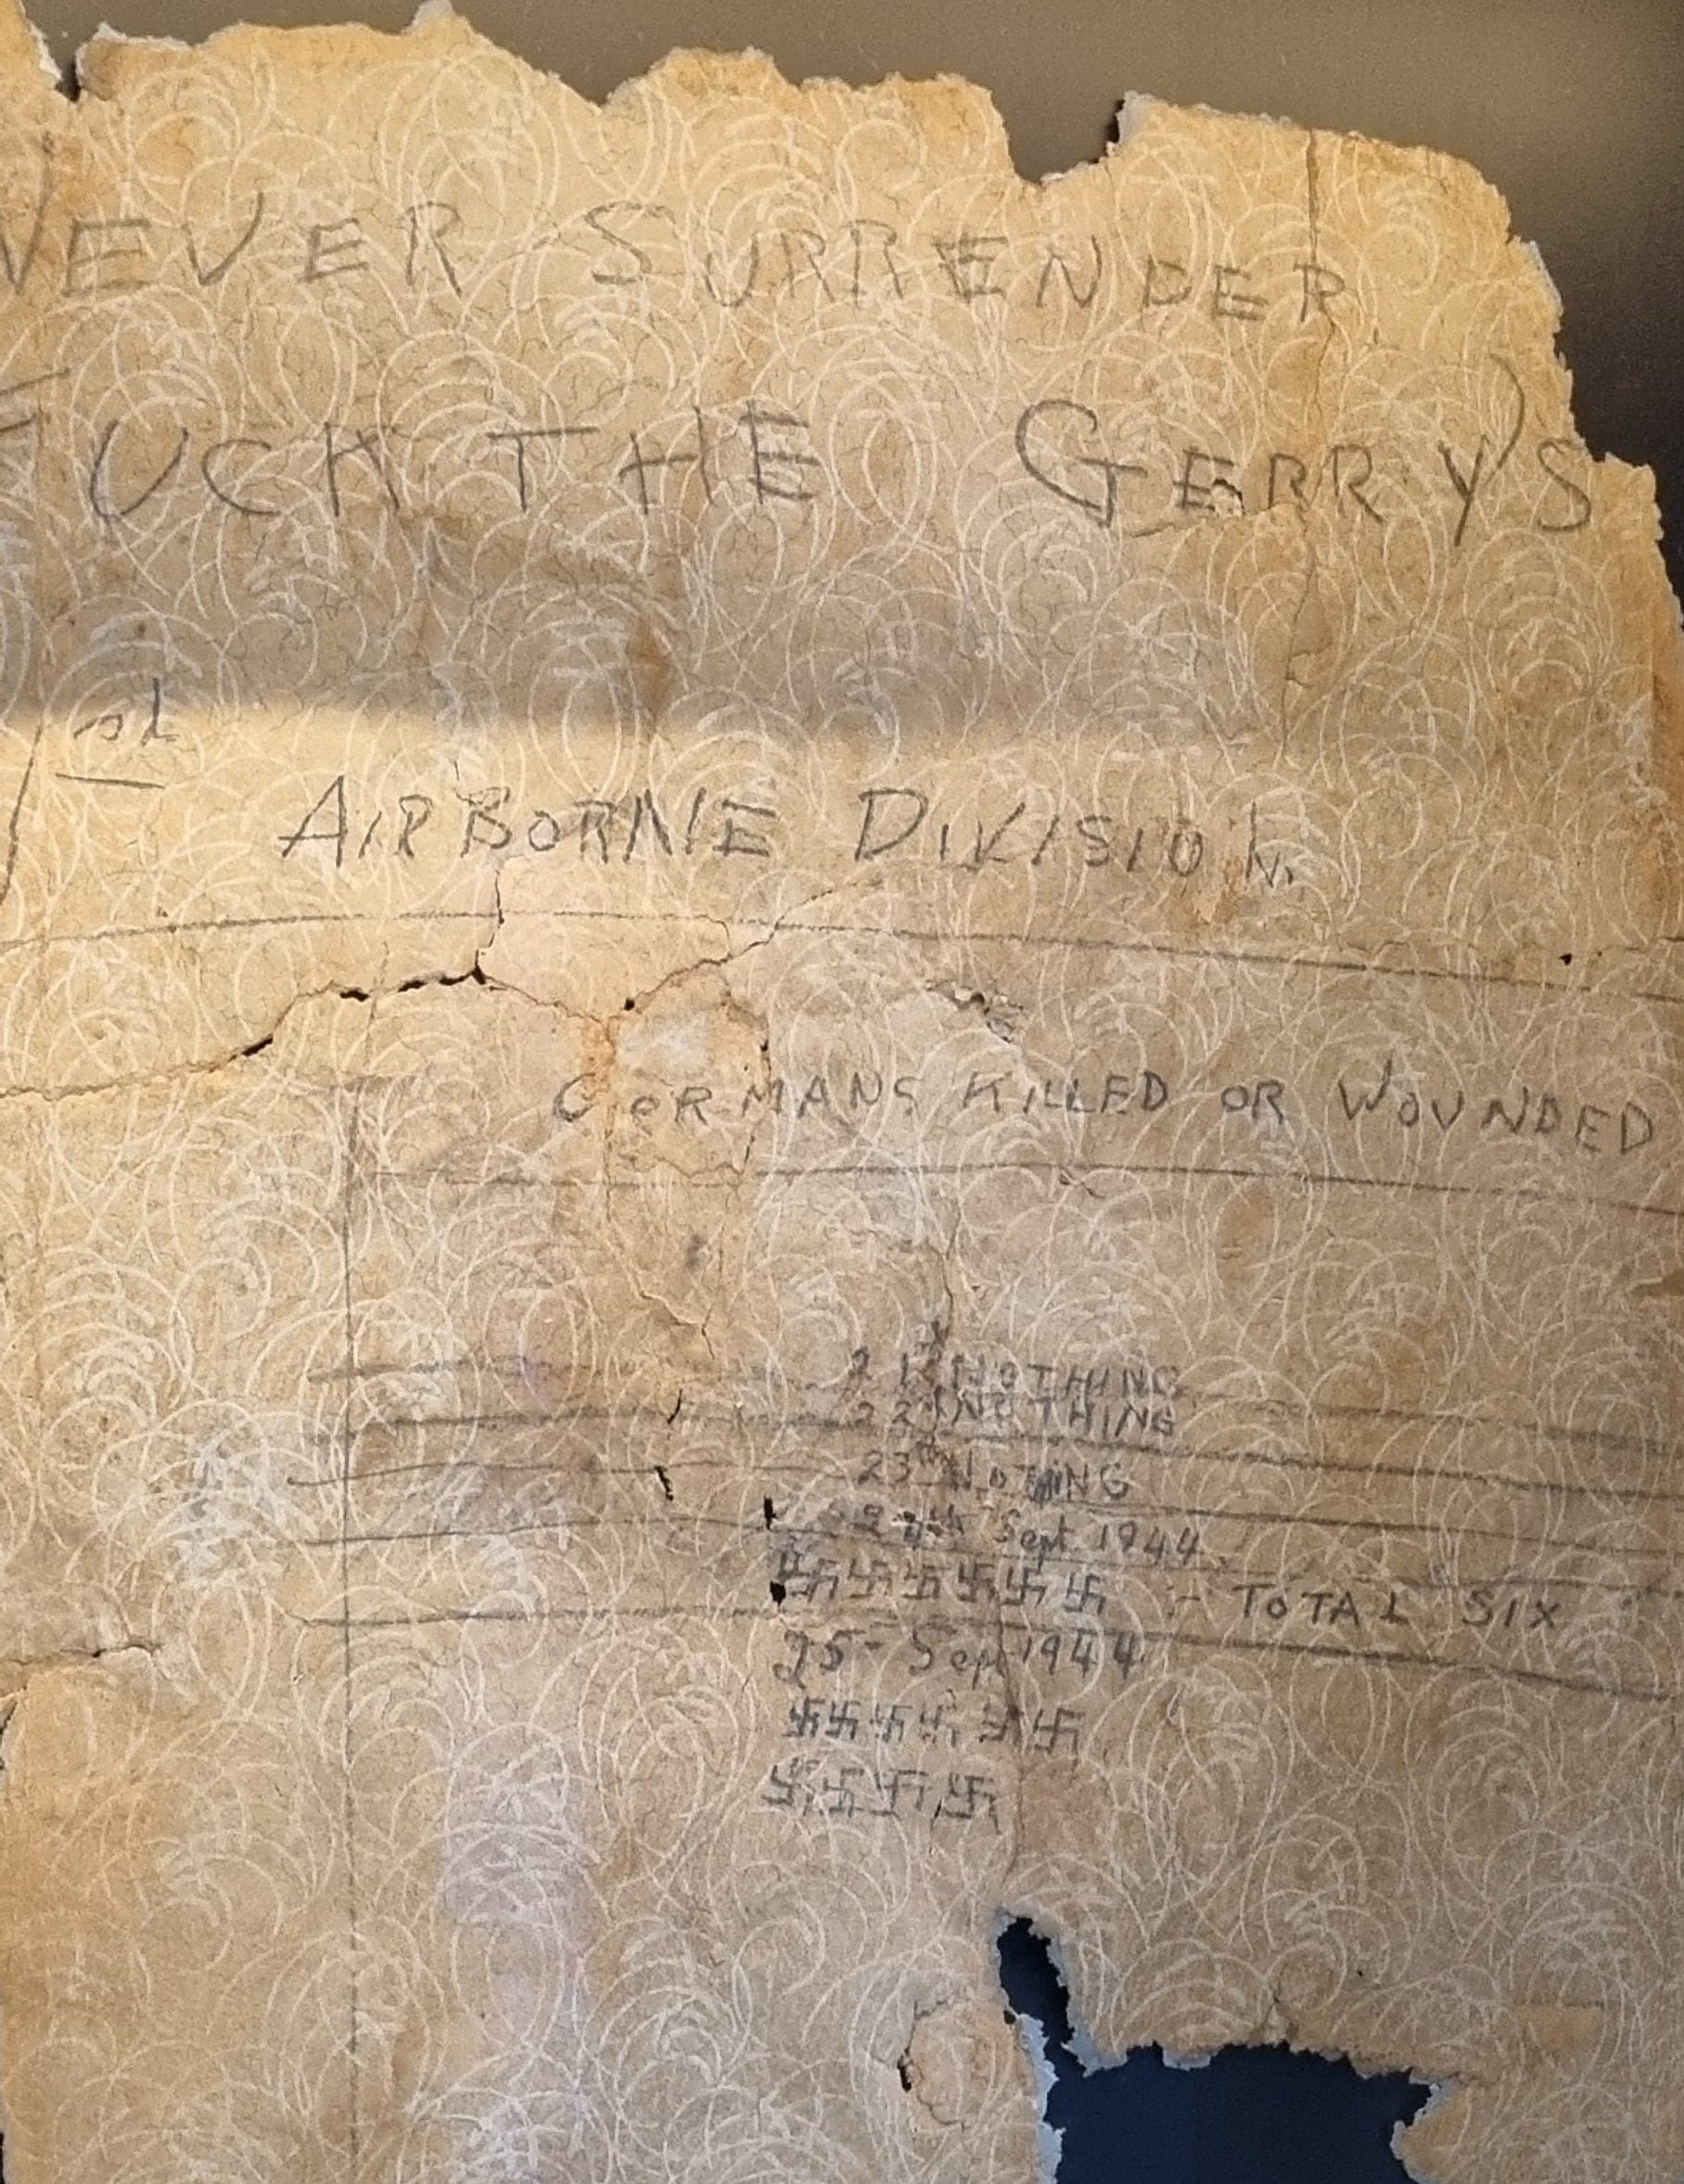 NEVER SURRENDER
FUCK THE GERRY'S
1st
AIRBORNE DIVISION.
GERMANS KILLED OR WOUNDED
21st NOTHING
22nd NOTHING
23rd NOTHING
24th Sept 1944.
卐卐卐卐卐卐 :- TOTAL SIX
25- Sept 1944
卐卐卐卐卐卐
卐卐卐卐